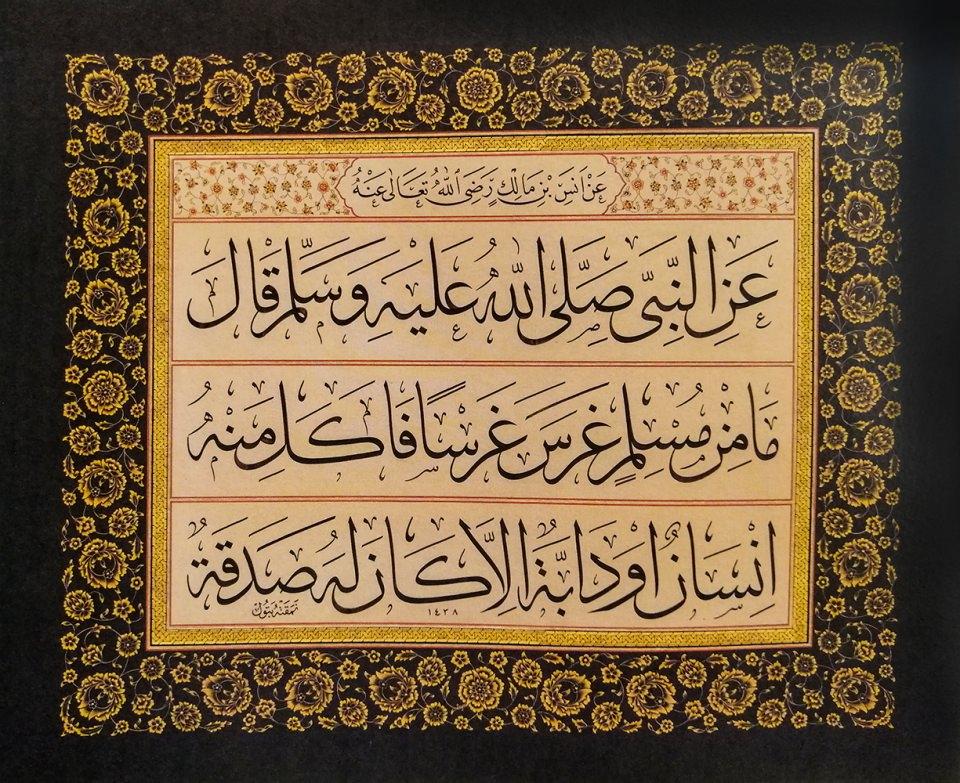 عَنْ اَنَسِ بْنِ مَالِكٍ رَضِیَ اللهُ تَعَالٰی عَنْهُ
عَنِ النَّبِیِّ صَلَّی اللهُ عَلَیْهِ وَسَلَّمَ قَالَ
مَا مِنْ مُسْلِمٍ غَرَسَ غَرْسًا فَاَكَلَ مِنْهُ
اِنْسَانٌ اَوْ دَابَّةٌ اِلَّا كَانَ لَهُ صَدَقَةٌ
١٤٣٨
نمقته بتول